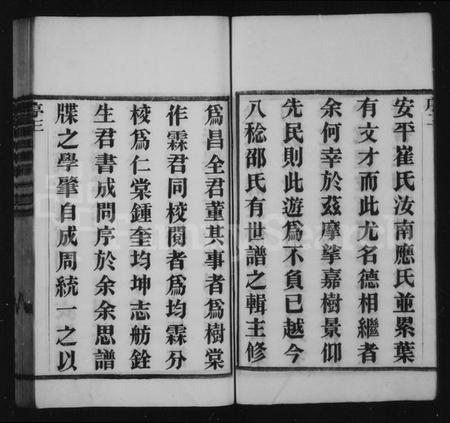 安平崔氏汝南應氏並累葉
有文才而此尤名德相繼者
余何幸於茲摩挲嘉樹景仰
先民則此遊為不負已越今
八稔邵氏有世譜之輯主修
為昌全君董其事者為樹棠
作霖君同校閱者為均霖分
校為仁棠鍾奎均坤志舫銓
生君書成問序於余余思譜
牒之學肇自成周統一之以
序三
FamilySearch